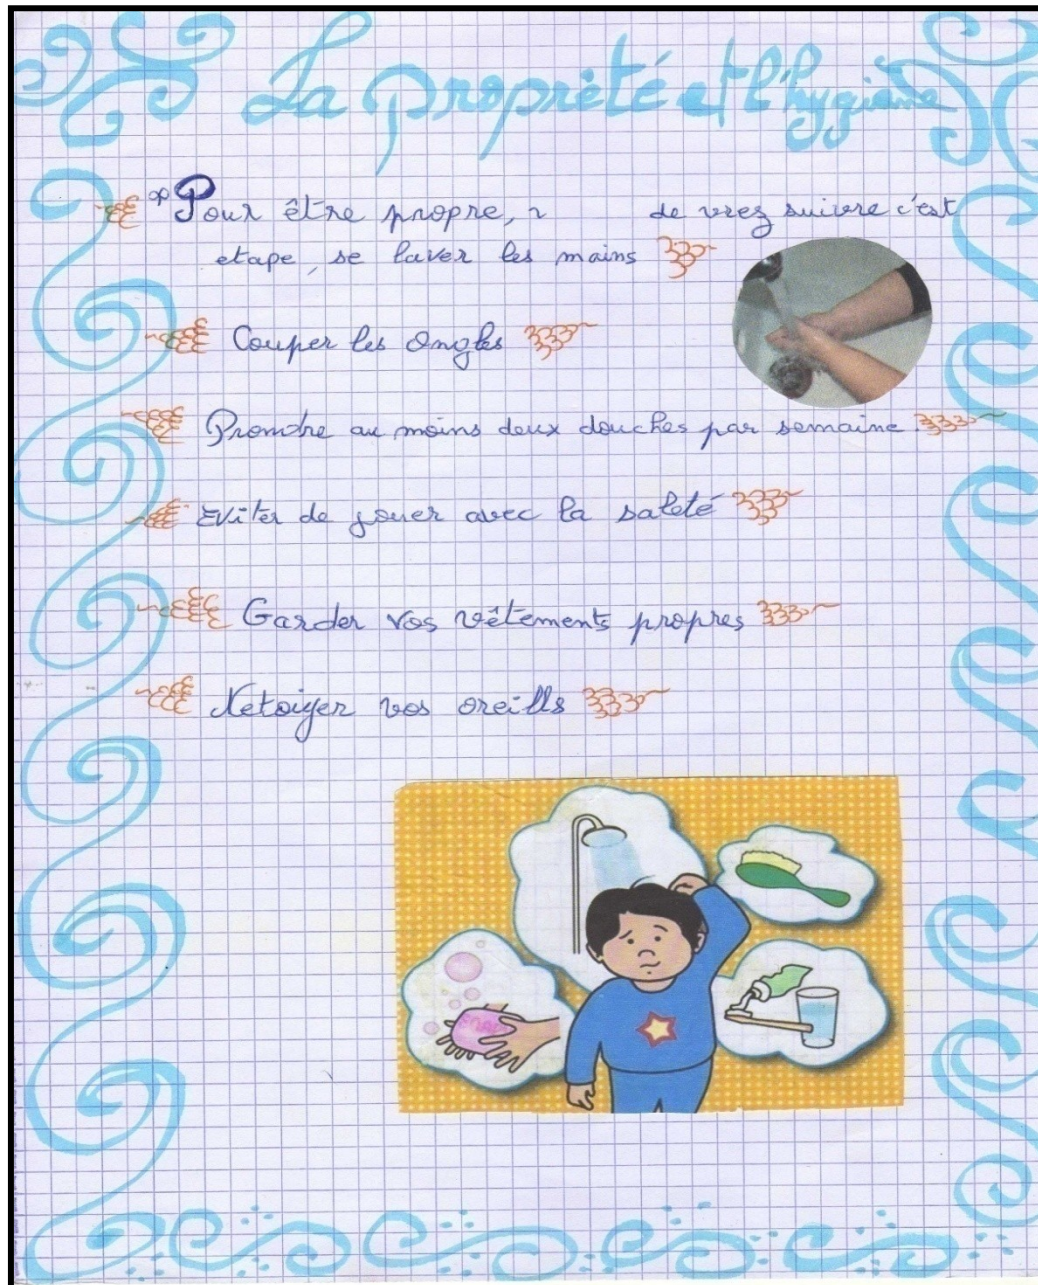 La propriété et l'hygiène
Pour être propre, de vrez suivre c'est
etape, se laver les mains
Couper les ongles
Prendre au moins deux douches par semaine
Eviter de jouer avec la saleté
Garder vos vêtements propres
Netoiyer vos oreills